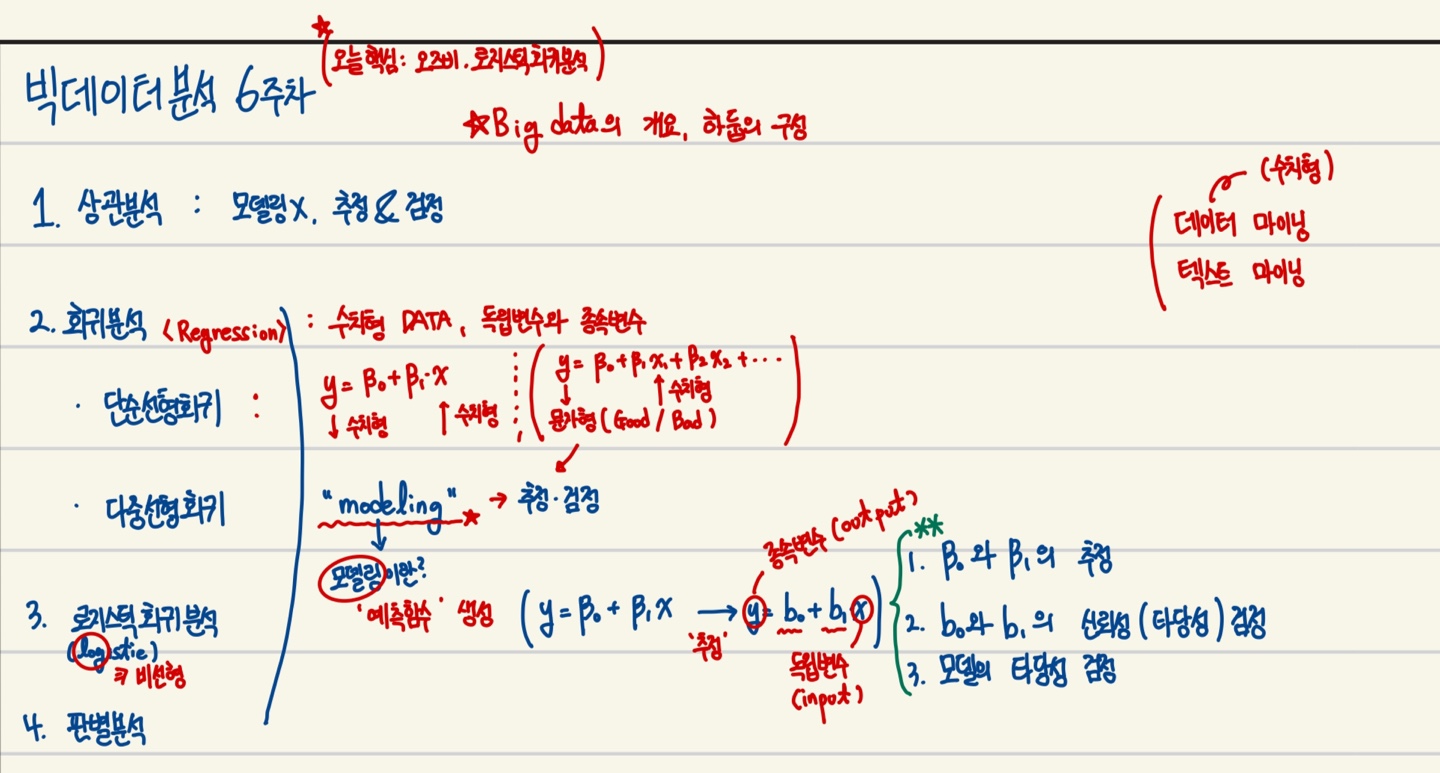 ★(오늘 핵심: 오즈비. 로지스틱회귀분석)
빅데이터분석 6주차
☆Big data의 개요, 하둡의 구성
(수치형)
데이터 마이닝
텍스트 마이닝
1. 상관분석 : 모델링X. 추정 & 검정
2. 회귀분석 <Regression> : 수치형 DATA, 독립변수와 종속변수
· 단순선형회귀 : y = β₀+β₁·x
↓ 수치형 ↑ 수치형
(y = β₀+β₁x₁+β₂x₂+···
↓ ↑ 수치형
문자형 (Good / Bad))
· 다중선형회귀
"modeling" ★ → 추정·검정
모델링이란?
'예측함수' 생성 (y = β₀ + β₁x → y = b₀ + b₁x)
'추정'
종속변수 (output)
독립변수
(input)
**
1. β₀와 β₁의 추정
2. b₀와 b₁의 신뢰성 (타당성) 검정
3. 모델의 타당성 검정
3. 로지스틱 회귀분석
(logistic)
비선형
4. 판별분석